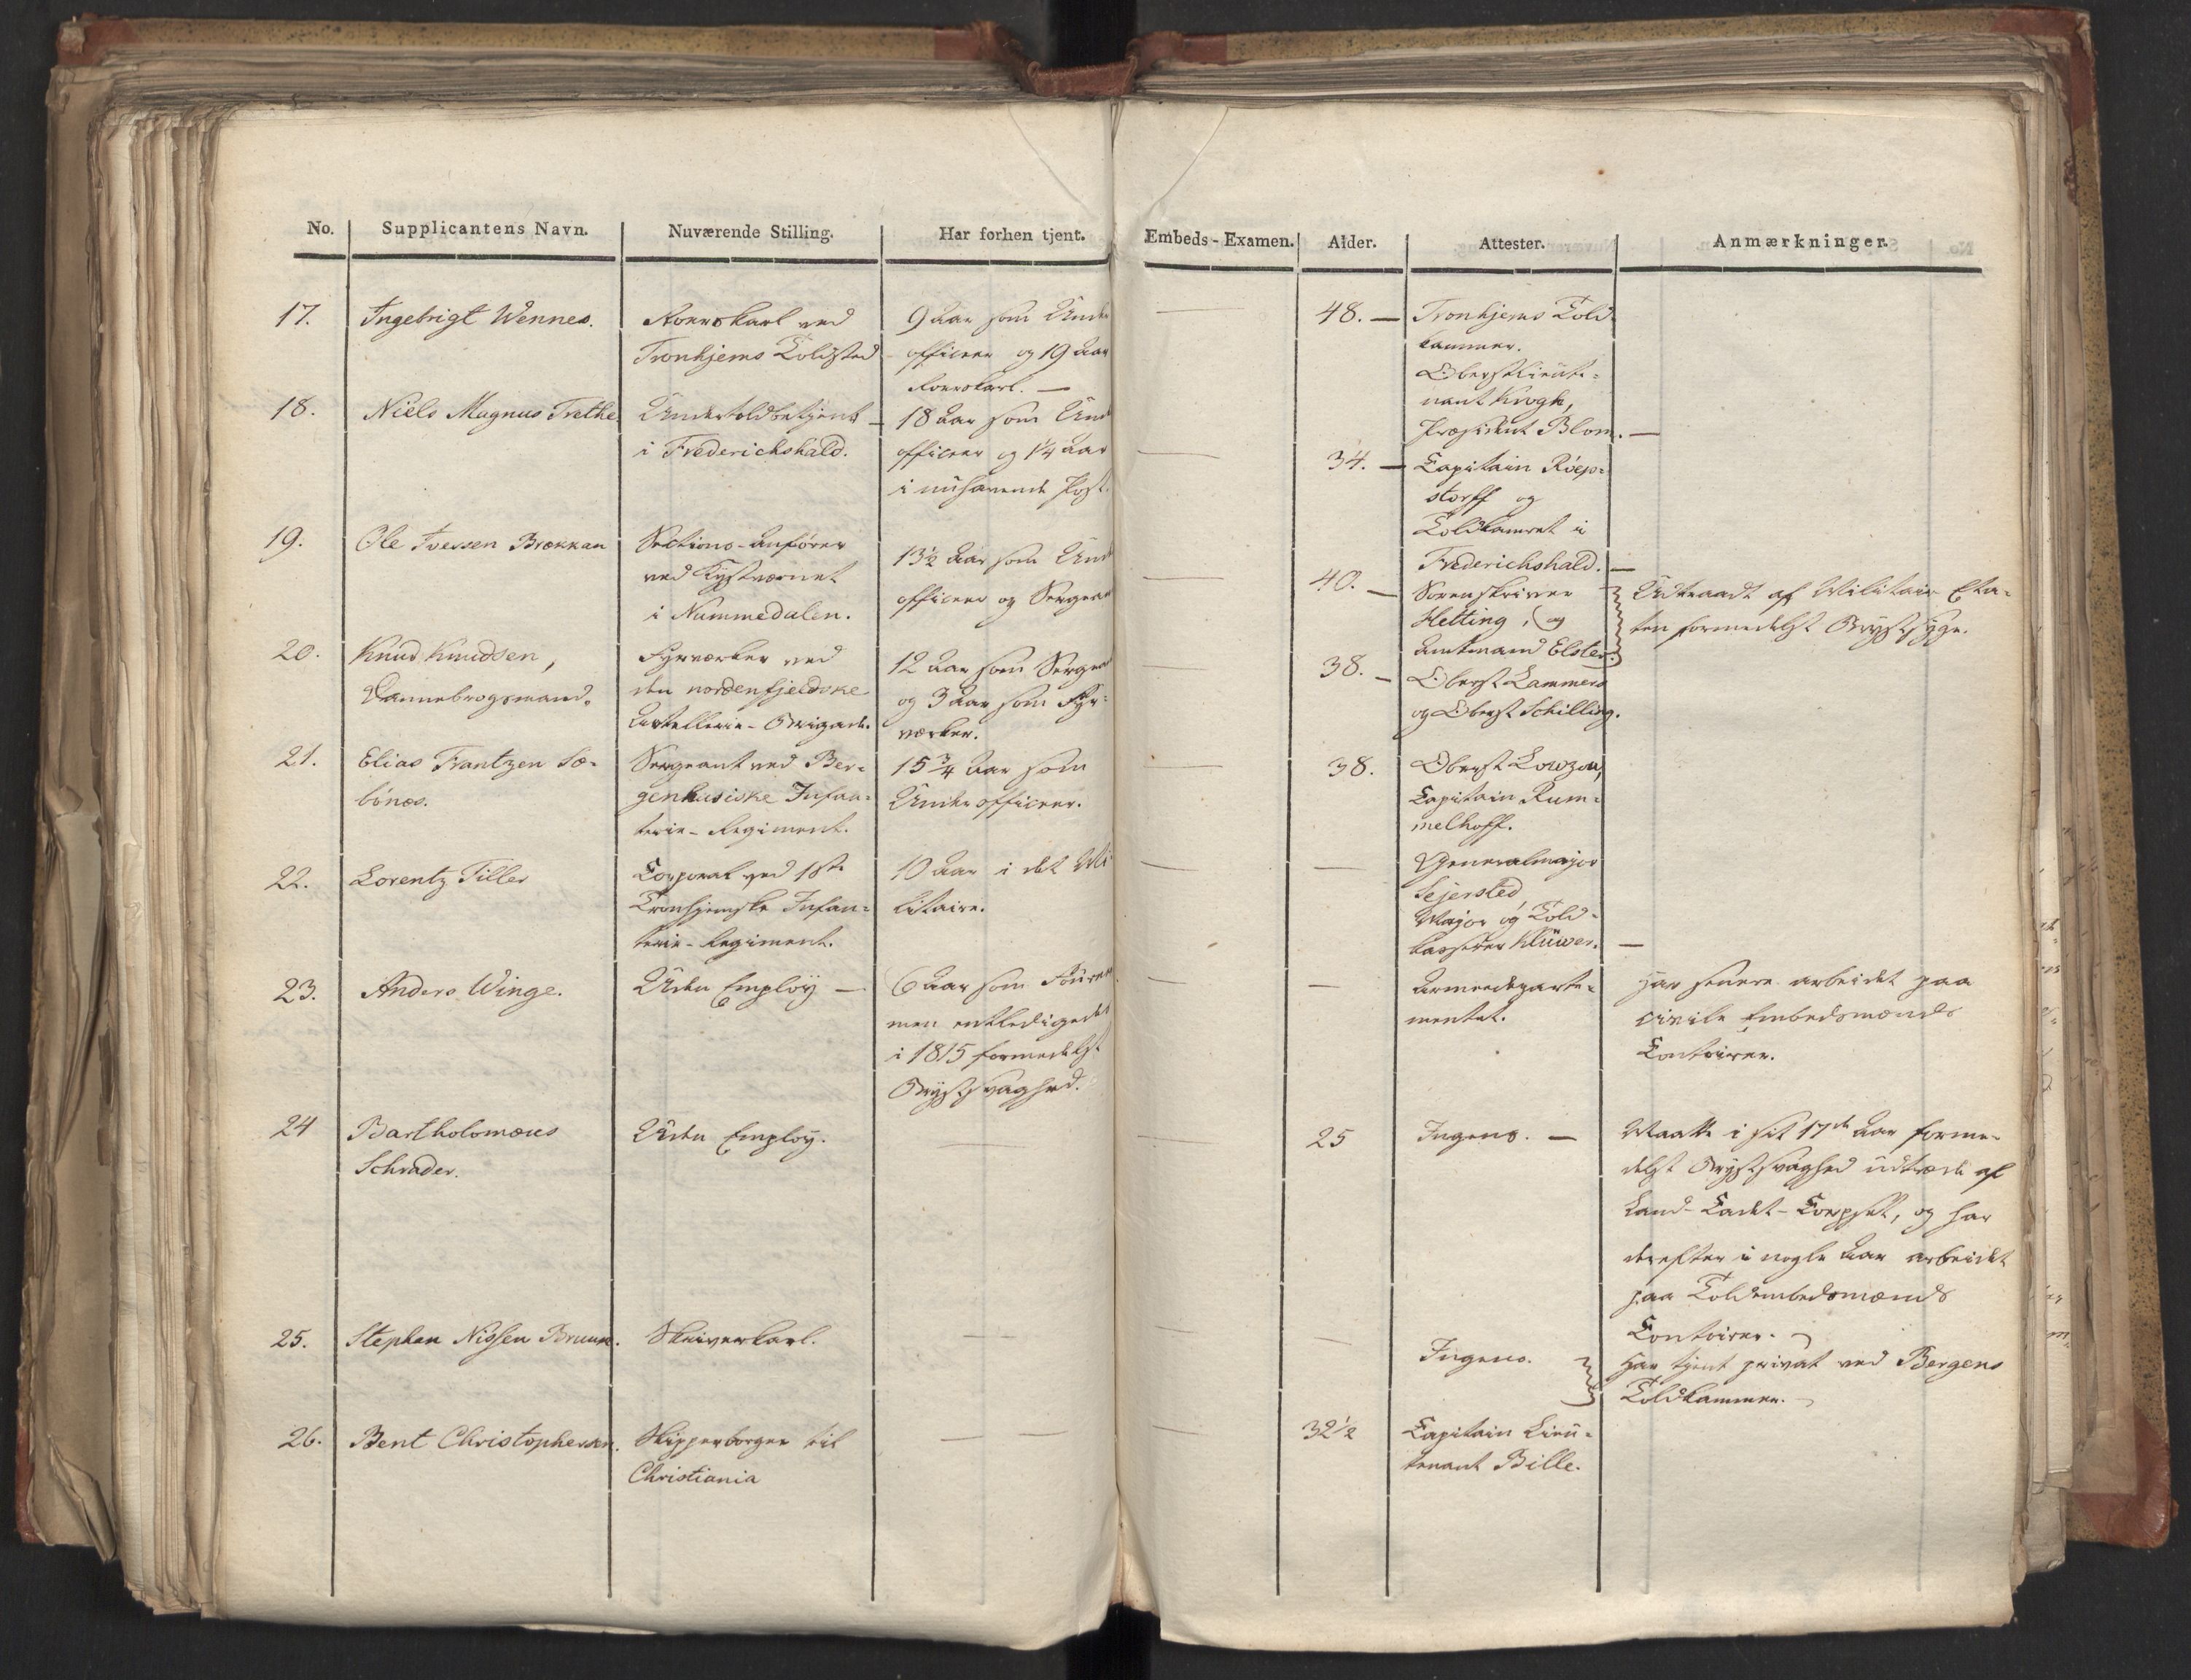 No. Supplicantens Navn. Nuværende Stilling. Har forhen tjent. Embeds-Examen. Alder. Attester. Anmærkninger.
17. Ingebrigt Wennes.
Roerskarl ved
Tronhjems Toldsted
9 Aar som Under
officeer og 19 Aar
Roerskarl. —
—
48. —
Tronhjems Told-
kammer.
Oberstlieute-
nant Krogh,
Præsident Blom. —
18. Niels Magnus Trethe.
Undertoldbetjent —
i Frederichshald.
18 Aar som Und
officeer og 1¼ Aar
i nuhavende Post.
—
34. —
Capitain Röep-
storff og
Toldkamret i
Frederichshald. —
19. Ole Iversen Brækkan
Sections-Anförer
ved Kystværnet
i Nummedalen.
13½ Aar som Und
officeer og Sergean
—
40. —
Sorenskriver
Hetting, og
Amtmand Elster.
Udtraadt af Militair Eta-
ten formedelst Brystsyge.
20. Knud Knudsen,
Dannebrogsmand.
Fyrværker ved
den nordenfjeldske
Artillerie-Brigade.
12 Aar som Sergean
og 3 Aar som Fyr-
værker.
—
38. —
Oberst Lammers
og Oberst Schilling.
21. Elias Frantzen Sæ-
bönæs.
Sergeant ved Ber-
genhusiske Infan-
terie-Regiment.
15¾ Aar som
Underofficeer.
—
38.
Oberst Lowzou,
Capitain Rum-
melhoff.
22. Lorentz Tiller
Corporal ved 1ste
Tronhjemske Infan-
terie-Regiment.
10 Aar i det Mi
litaire.
—
—
Generalmajor
Sejersted,
Major og Told-
kasserer Klüwer. —
23. Anders Winge.
Uden Employ —
6 Aar som Foureer
men entledigedes
i 1815 formedelst
Brystsvaghed.
—
—
Armeedeparte-
mentet.
Har senere arbeidet paa
civile Embedsmænds
Contoirer.
24 Bartholomæus
Schrader.
Uden Employ.
—
—
25
Ingens. —
Maatte i sit 17de Aar forme-
delst Brystsvaghed udtræde af
Land-Cadet-Corpset, og har
derefter i nogle Aar arbeidet
paa Toldembedsmænds
Contoirer. —
25. Stephan Nissen Bruun.
Skriverkarl.
— —
—
—
Ingens.
Har tjent privat ved Bergens
Toldkammer. —
26. Bent Christophersen.
Skipperborger til
Christiania
— —
—
32½
Capitain Lieu-
tenant Bille.